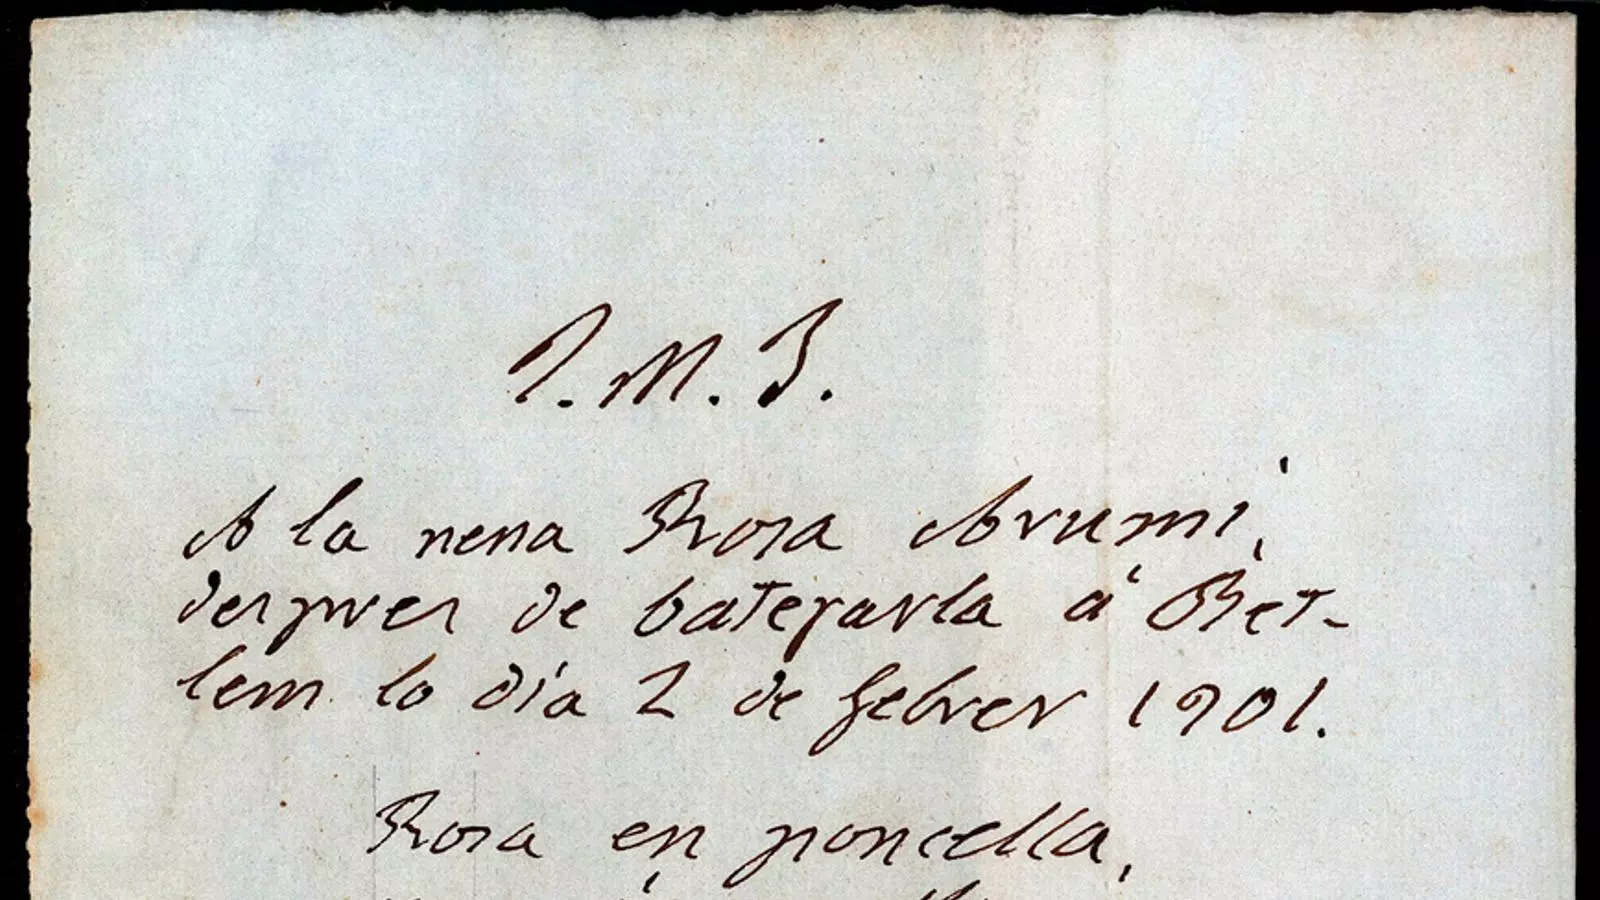 J. M. J.
A la nena Rosa Arumí,
despres de batejarla á Bet-
lem lo día 2 de febrer 1901.
Rosa en poncella,